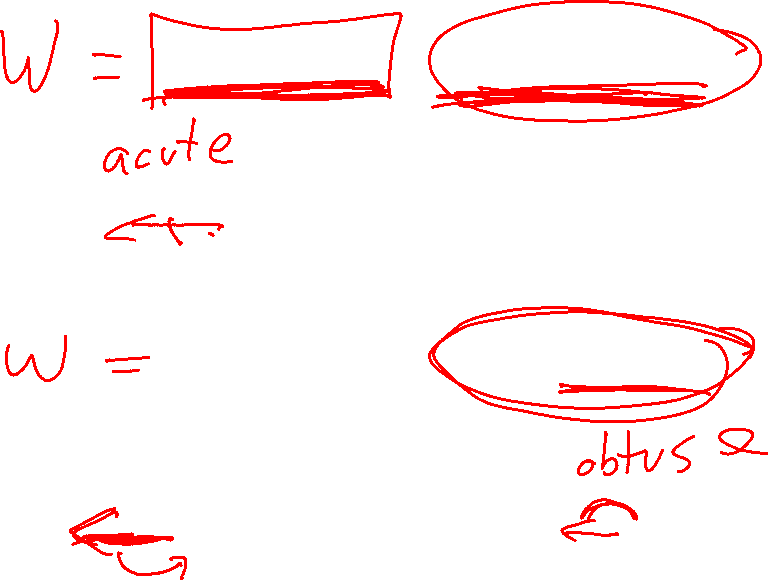 W =
acute
W =
obtuse